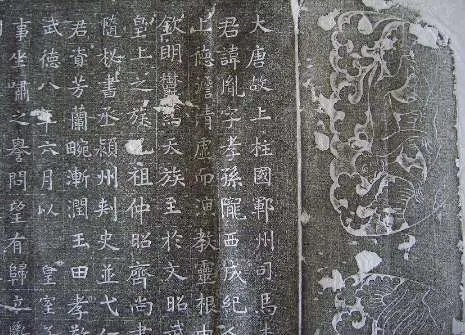 大唐故上柱國鄆州司馬
君諱胤字孝孫隴西成紀人
上德清虛而演教靈根
欽明鬱為天族至於文昭武
皇上之族兄祖仲昭齊尚書
隨秘書丞潁州刾史並弋
君資芳蘭畹漸潤玉田孝
武德八年六月以 皇室
事坐嘯之譽問望有歸立